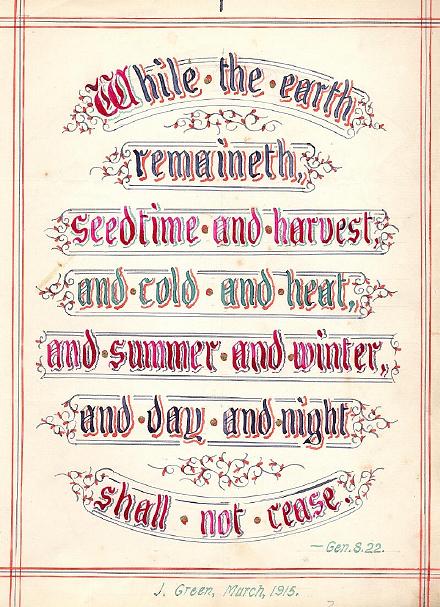 While · the · earth
remaineth,
seedtime · and · harvest,
and · cold · and · heat,
and · summer · and · winter,
and · day · and · night
shall · not · cease.
— Gen. 8. 22.
J. Green, March, 1915.